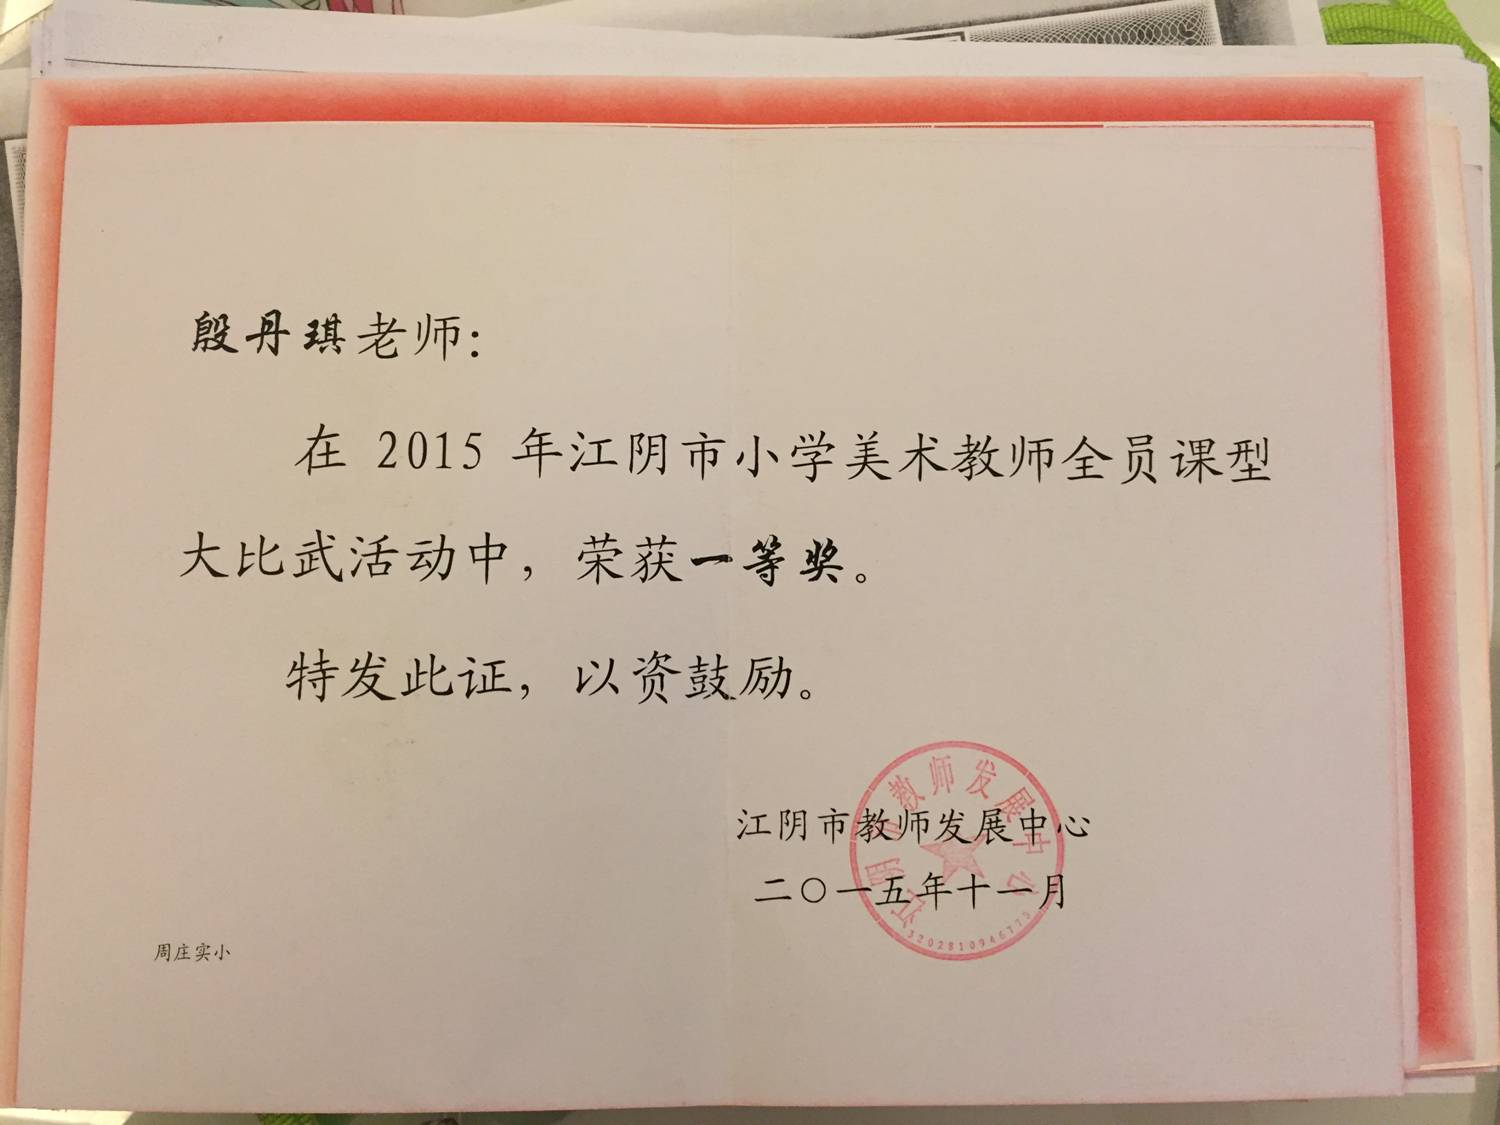 殷丹琪老师：
在 2015 年江阴市小学美术教师全员课型
大比武活动中，荣获一等奖。
特发此证，以资鼓励。
江阴市教师发展中心
二〇一五年十一月
江阴市教师发展中心
3202810946773
周庄实小